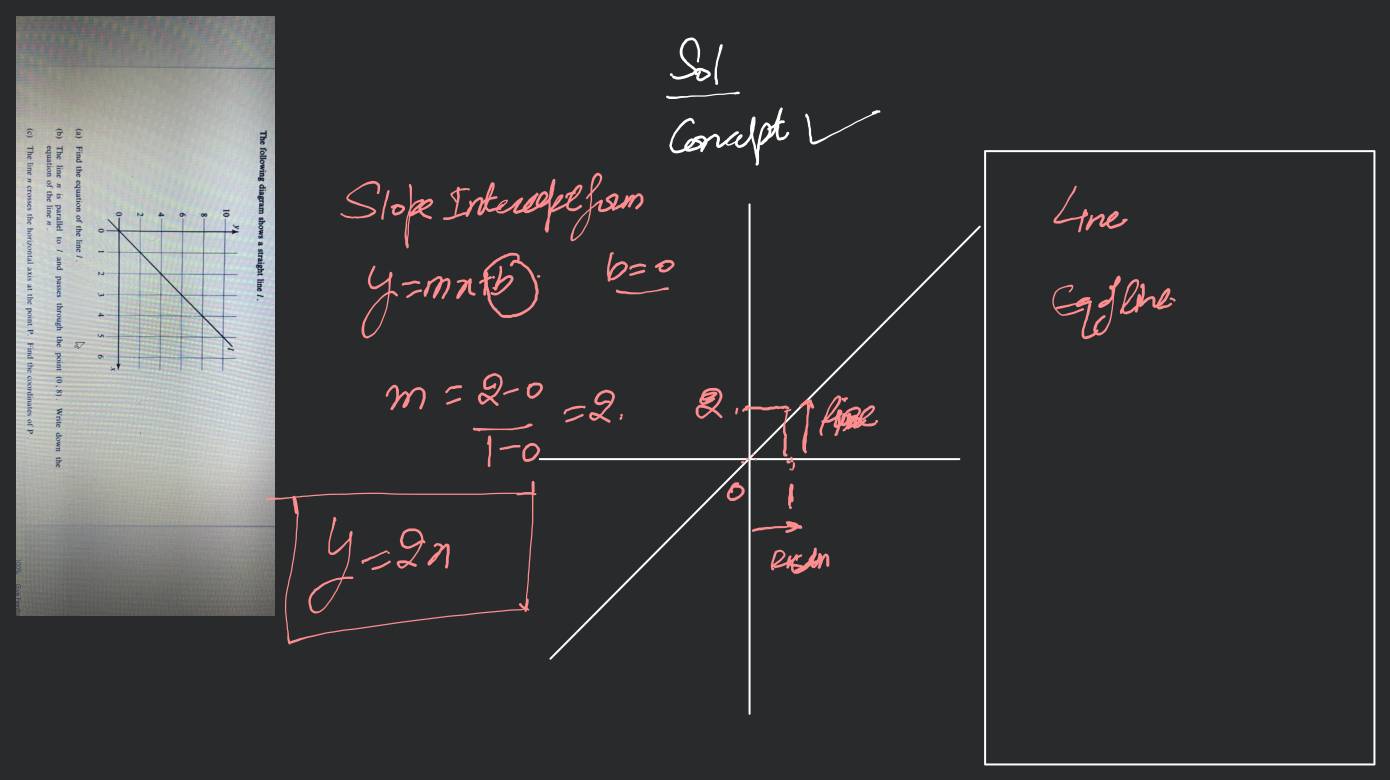 The following diagram shows a straight line l.
y
10
8
6
4
2
0
0 1 2 3 4 5 6
x
l
(a) Find the equation of the line l.
(b) The line n is parallel to l and passes through the point (0, 8). Write down the
equation of the line n.
(c) The line n crosses the horizontal axis at the point P. Find the coordinates of P.
Sol
Concept
Slope Intercept form
y=mx+b
b=0
m = 2-0
1-0
=2.
y=2x
2
0
1
Line
Eq of line